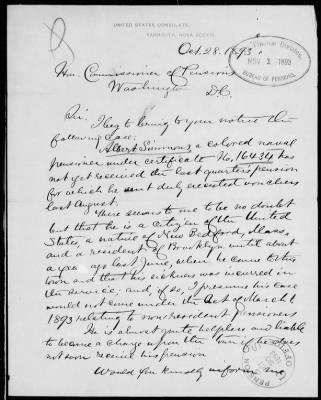 UNITED STATES CONSULATE,
YARMOUTH, NOVA SCOTIA.
Oct. 28. 1893
Finance Division,
NOV 2 1893
BUREAU OF PENSIONS.
Hon. Commissioner of Pensions
Washington D.C.
Sir:
I beg to bring to your notice the
following case:
Albert Simmons, a colored naval
pensioner under certificate No. 16434 has
not yet received the last quarter's pension
for which he sent duly executed vouchers
last August.
There seems to me to be no doubt
but that he is a citizen of the United
States, a native of New Bedford, Mass.
and a resident of Brooklyn until about
a year ago last June, when he came to this
town and that his sickness was incurred in
the service; and, if so, I presume his case
would not come under the Act of March 1
1893 relating to non resident pensioners
He is almost quite helpless and liable
to become a charge upon the town if he does
not soon receive his pension
Would you kindly inform me